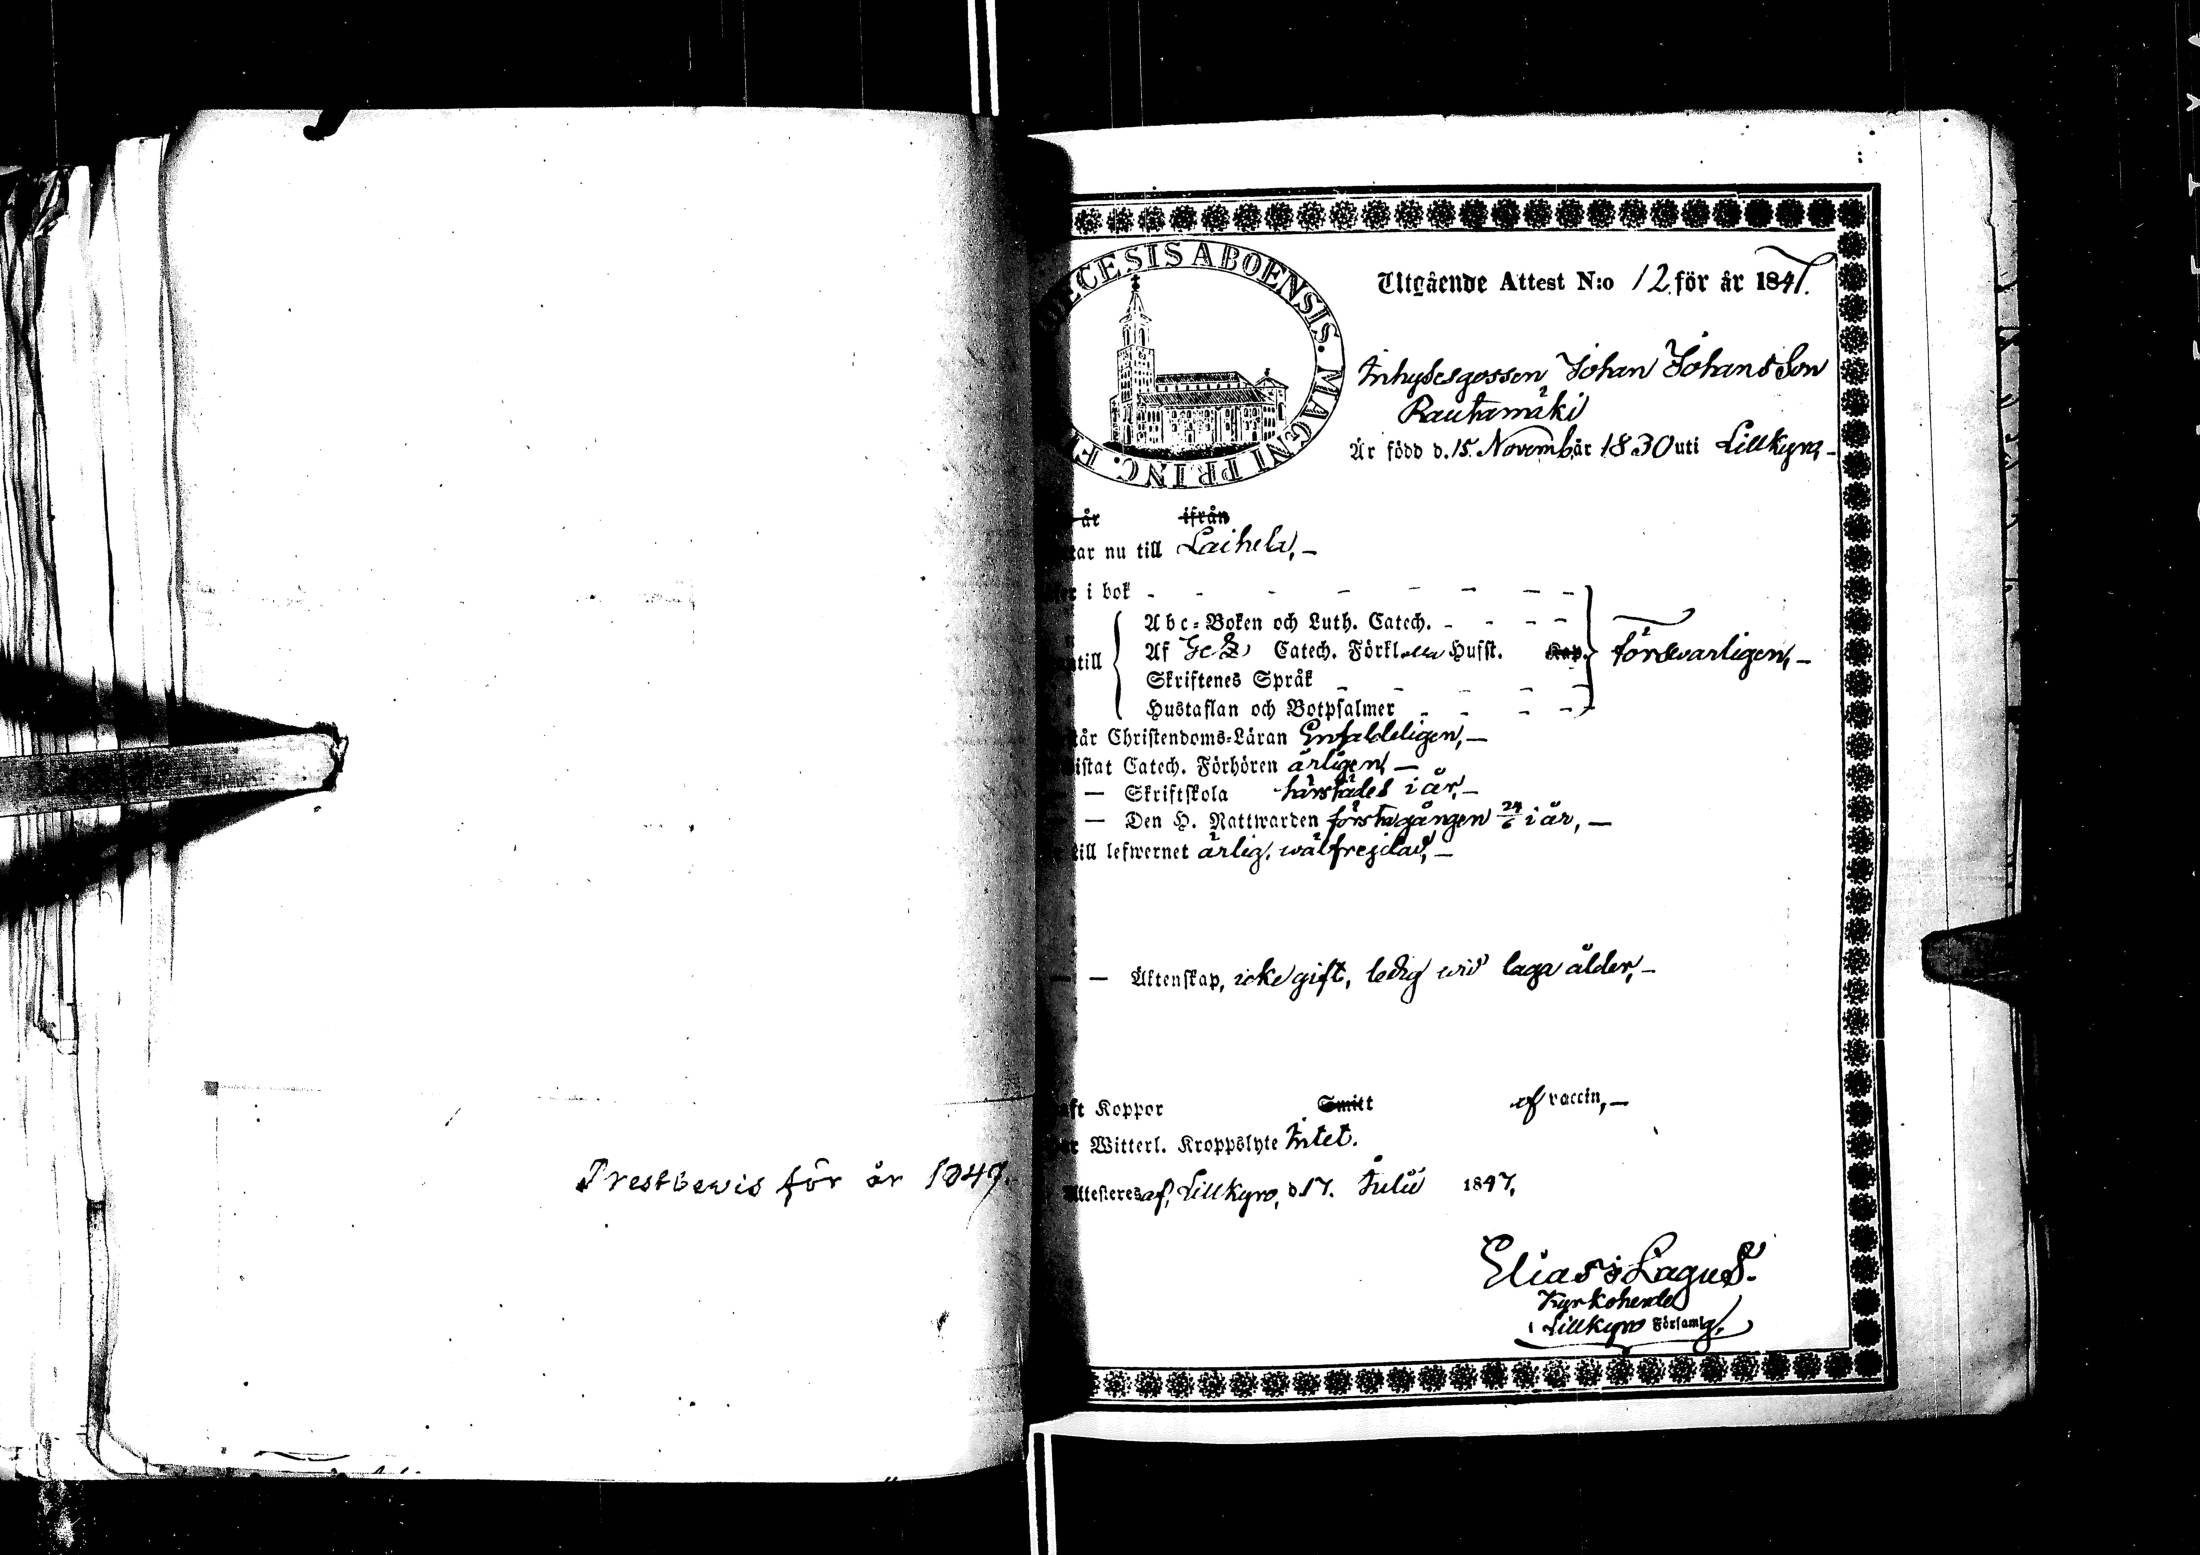 Prestbewis för år 1847.
ŒCESIS ABOENSIS. MAGNI PRINC. F
Utgående Attest N:o 12. för år 1847.
Inhysesgossen Johan Johansson
Rautamäki
Är född d. 15. Novemb. år 1830 uti Lillkyro, –
år ifrån
tar nu till Laihela, –
i bok - - - - - - - -
Abc-Boken och Luth. Catech. - - - -
Af Catech. Förkl. Hufst. Kap.
till
försvarligen, –
Skriftenes Språk - - - - -
Hustaflan och Botpsalmer - - - - -
tår Christendoms-Läran Enfaldeligen, –
istat Catech. Förhören årligen, –
— Skriftskola härstädes i år, –
— Den H. Nattwarden första gången 24/6 i år, –
till lefwernet ärlig, wälfrejdad, –
— — Äktenskap, icke gift, ledig wid laga ålder, –
aft Koppor Smitt af vaccin, –
ar Witterl. Kroppslyte Intet.
Attesteres af, Lillkyro, d. 17. Julii 1847.
Elias Lagus.
Kyrkoherde
i Lillkyro Församlg.